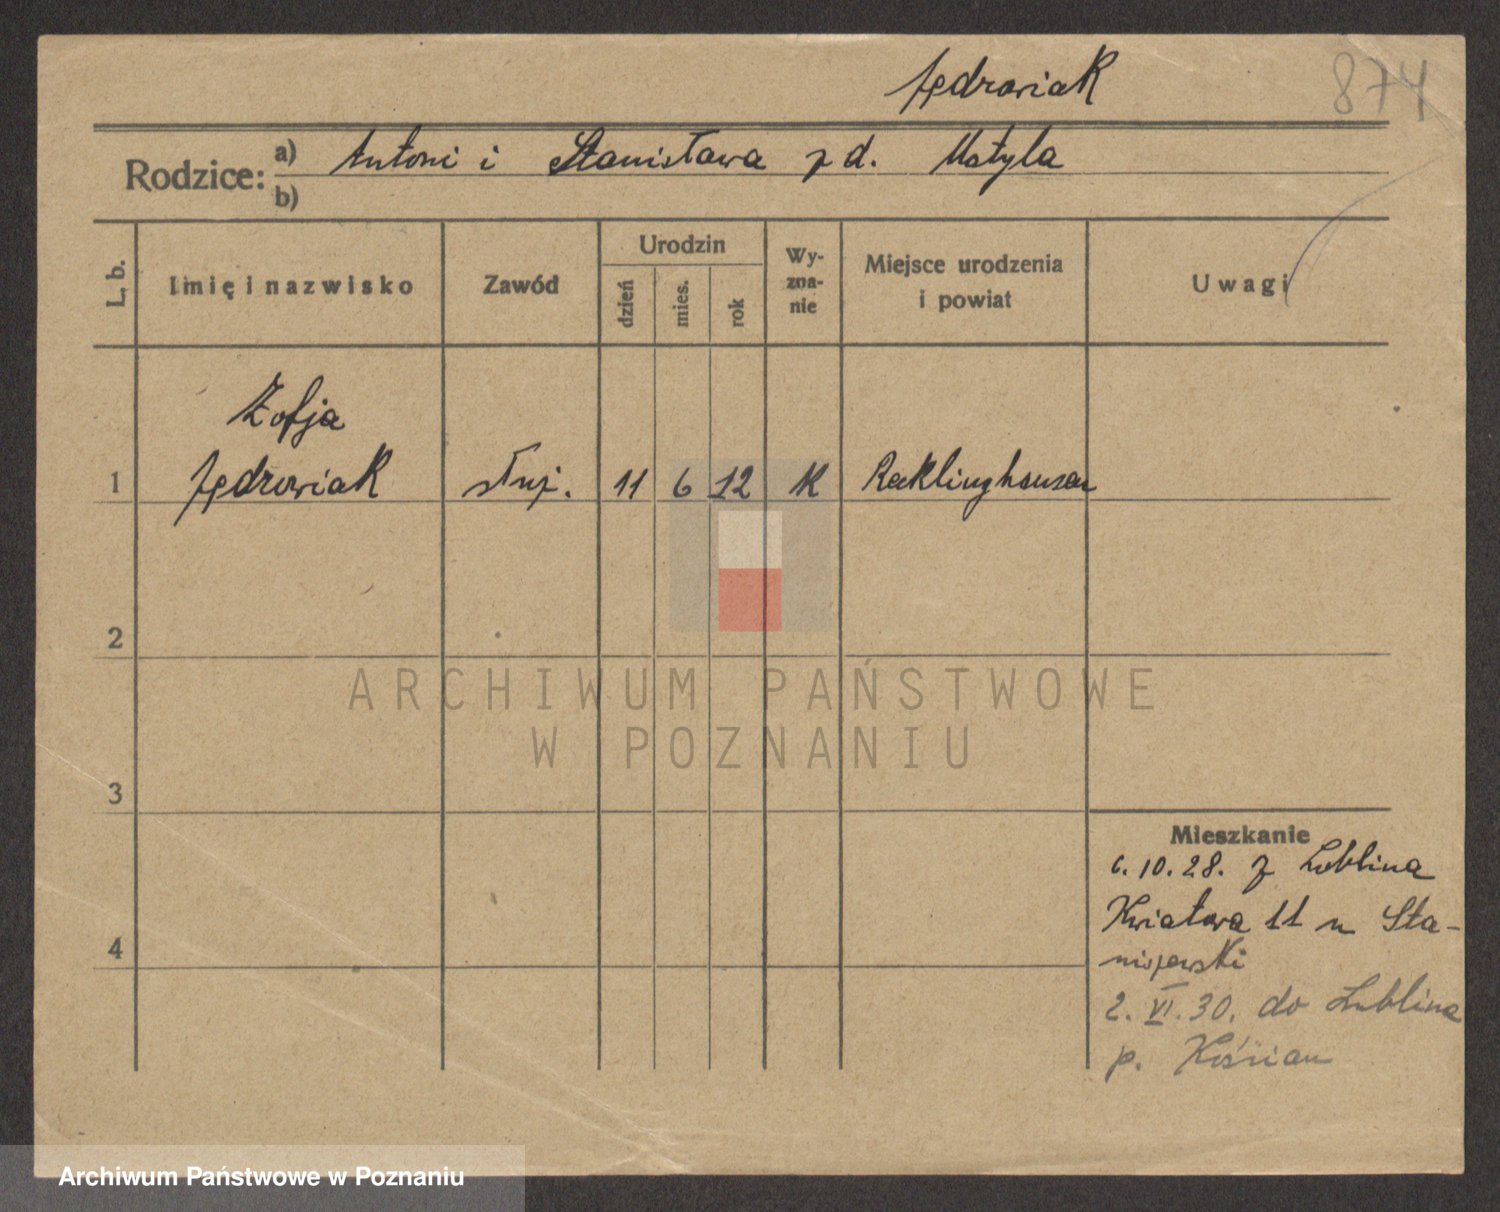 Jędrowiak
874
Rodzice: a) Antoni i Stanisława z d. Matyla
b)
L. b.
Imię i nazwisko
Zawód
Urodzin
dzień
mies.
rok
Wy-
zna-
nie
Miejsce urodzenia
i powiat
Uwagi
Zofja
1 Jędrowiak służ. 11 6 12 K Recklinghausen
2
3
4
Mieszkanie
6.10.28. z Lublina
Kwiatowa 11 u Sta-
niszewski
2. VI. 30. do Lublina
p. Kościan
ARCHIWUM PAŃSTWOWE
W POZNANIU
Archiwum Państwowe w Poznaniu